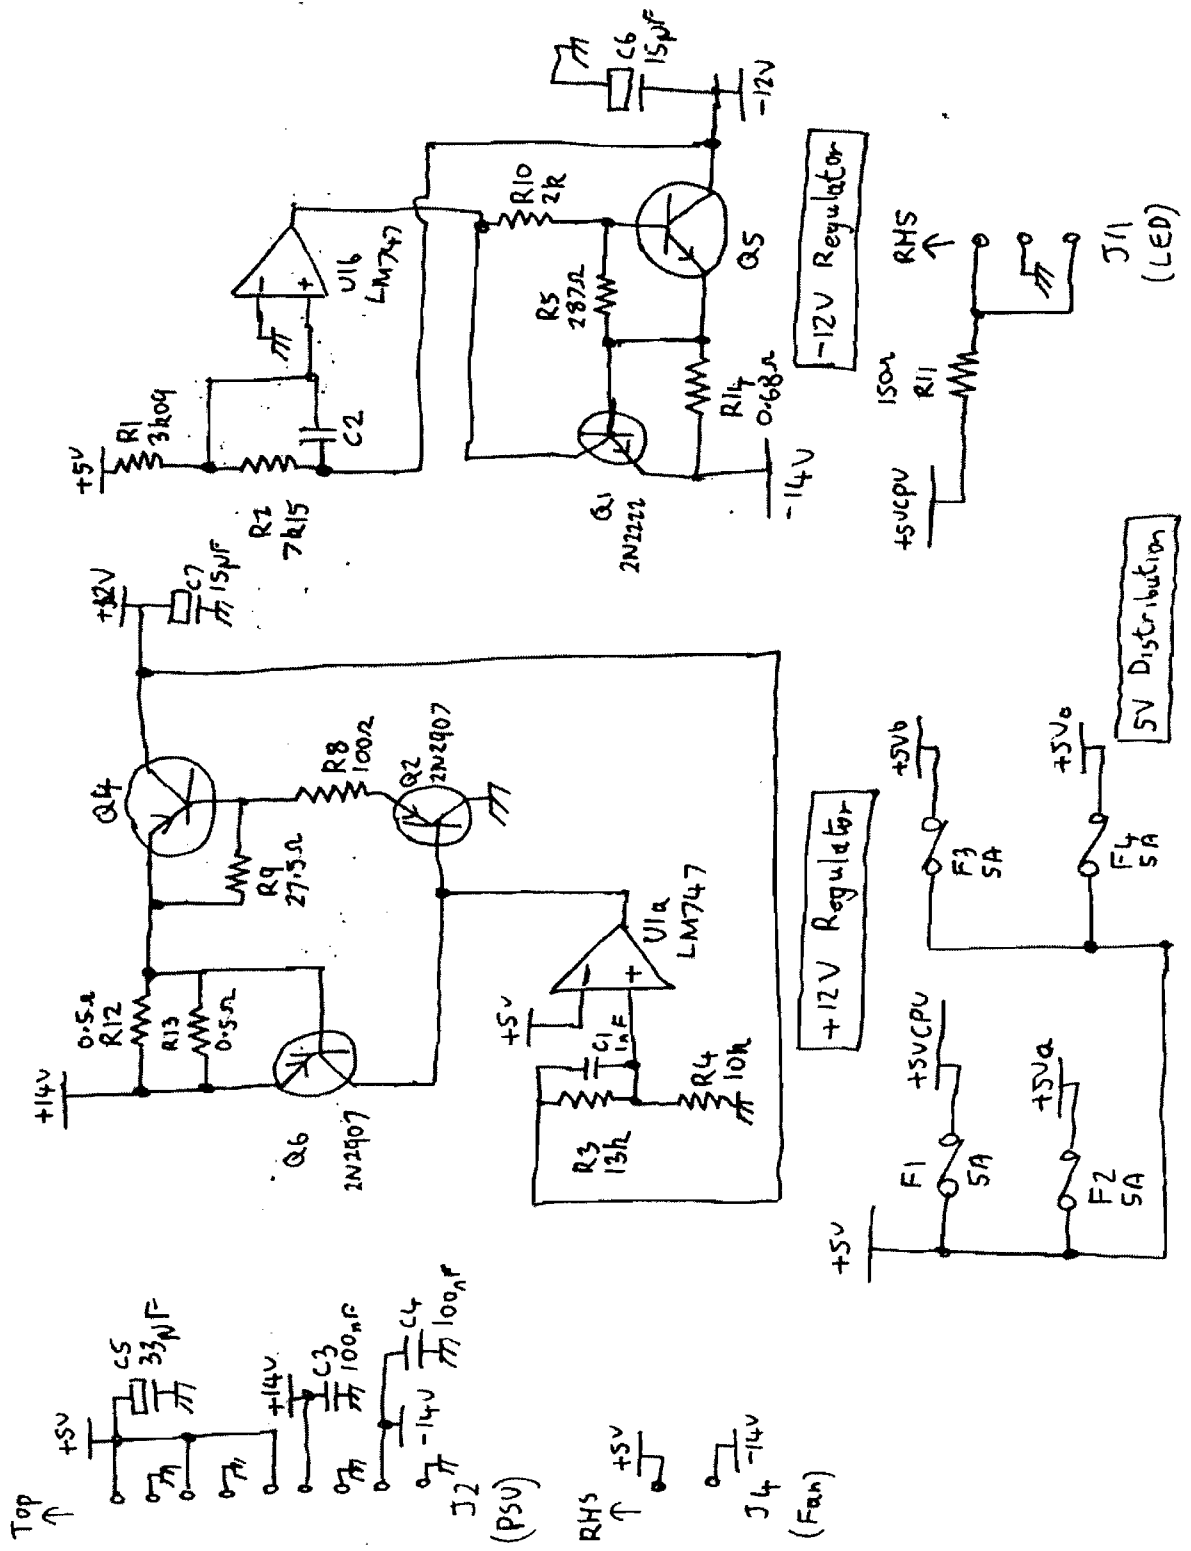 Top
↑
+5V
C5
33µF
+14V
C3
100nF
-14V
C4
100nF
J2
(PSU)
RHS
↑
+5V
-14V
J4
(Fan)
+14V
0.5Ω
R12
R13
0.5Ω
Q6
2N2907
Q4
R9
27.5Ω
R8
100Ω
Q2
2N2907
+12V
C7
15µF
+5V
C1
1nF
R3
13k
R4
10k
-
+
U1a
LM747
+12V Regulator
+5V
R1
3k09
R2
7k15
C2
-
+
U1b
LM747
R10
2k
R5
287Ω
Q1
2N2222
R14
0.68Ω
-14V
Q5
C6
15µF
-12V
-12V Regulator
+5V
F1
5A
+5VCPU
F2
5A
+5Va
F3
5A
+5Vb
F4
5A
5V Distribution
+5VCPU
150Ω
R11
RHS
↑
J11
(LED)